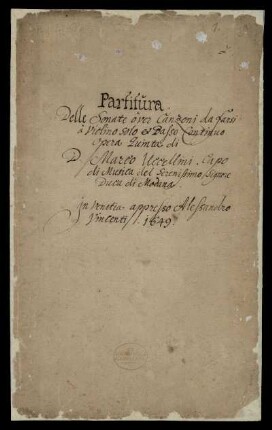 Partitura
Delle Sonate over Canzoni da farsi
à Violino solo et Basso Continuo
Opera Quinta di
D. Marco Uccellini. Capo
di Musica del Serenissimo Signore
Duca di Modana
In Venetia appresso Alessandro
Vincenti. 1649